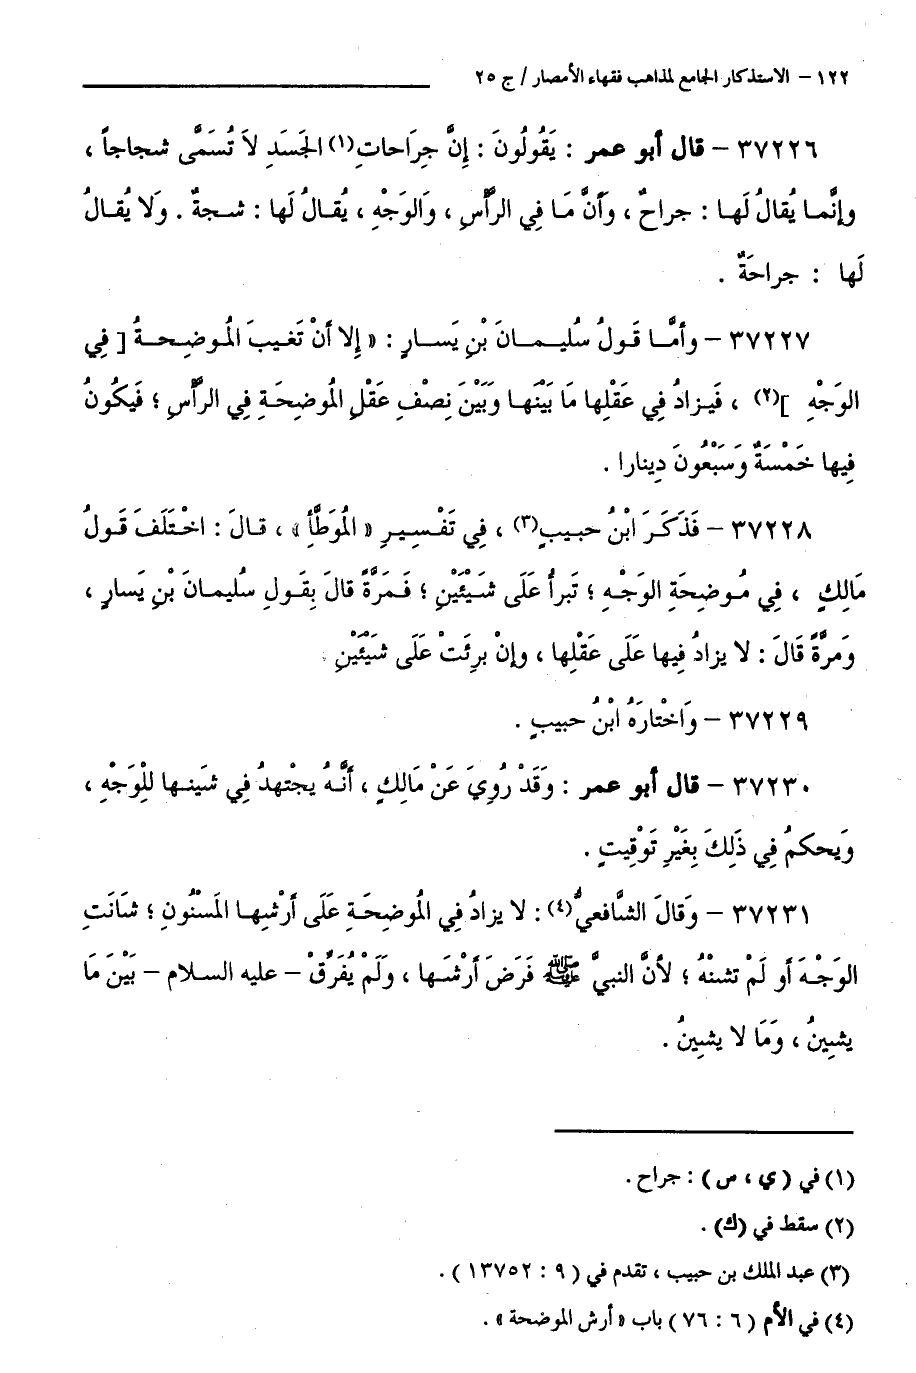 ١٢٢ – الاستذكار الجامع لمذاهب فقهاء الأمصار / ج ٢٥
٣٧٢٢٦ – قال أبو عمر : يَقُولُونَ : إنَّ جِرَاحاتِ(١) الجَسَدِ لاَ تُسَمَّى شجاجاً ،
وإنَّما يُقالُ لَها : جراحٌ ، وَأنَّ مَا فِي الرَّأْسِ ، وَالوَجْهِ ، يُقالُ لَها : شجةٌ . وَلا يُقالُ
لَها : جراحَةٌ .
٣٧٢٢٧ – وأمَّا قَولُ سُليمانَ بْنِ يَسارٍ : « إلا أنْ تَغيبَ المُوضِحةُ [ فِي
الوَجْهِ ](٢) ، فَيزادُ فِي عَقْلِها مَا بَيْنَها وَبَيْنَ نِصْفِ عَقْلِ المُوضِحَةِ فِي الرَّأْسِ ؛ فَيكُونُ
فِيها خَمْسَةٌ وَسَبْعُونَ دِينارا .
٣٧٢٢٨ – فَذَكَرَ ابْنُ حبيبٍ(٣) ، فِي تَفْسِيرِ « المُوَطَّأ » ، قالَ : اخْتَلَفَ قَولُ
مَالِكٍ ، فِي مُوضِحَةِ الوَجْهِ ؛ تَبرأُ عَلَى شَيْئَيْنِ ؛ فَمَرَّةً قالَ بِقَولِ سُليمانَ بْنِ يَسارٍ ،
وَمَرَّةً قَالَ : لا يزادُ فِيها عَلَى عَقْلِها ، وإنْ برِئَتْ عَلَى شَيْئَيْنِ .
٣٧٢٢٩ – وَاخْتارَهُ ابْنُ حبيبٍ .
٣٧٢٣٠ – قال أبو عمر : وَقَدْ رُوِيَ عَنْ مَالِكٍ ، أنَّهُ يجْتهدُ فِي شَينِها لِلْوَجْهِ ،
وَيَحكمُ فِي ذَلِكَ بِغَيْرِ تَوْقِيتٍ .
٣٧٢٣١ – وَقالَ الشَّافعيُّ(٤) : لا يزادُ فِي المُوضِحَةِ عَلَى أرْشِها المَسْنُونِ ؛ شانَتِ
الوَجْهَ أو لَمْ تشنْهُ ؛ لأنَّ النبيَّ ﷺ فَرَضَ أرْشَها ، وَلَمْ يُفَرِّقْ – عليه السلام – بَيْنَ مَا
يشينُ ، وَمَا لا يشينُ .
(١) في ( ي ، س ) : جراح .
(٢) سقط في (ك) .
(٣) عبد الملك بن حبيب ، تقدم في ( ٩ : ١٣٧٥٢ ) .
(٤) في الأم ( ٦ : ٧٦ ) باب « أرش الموضحة » .